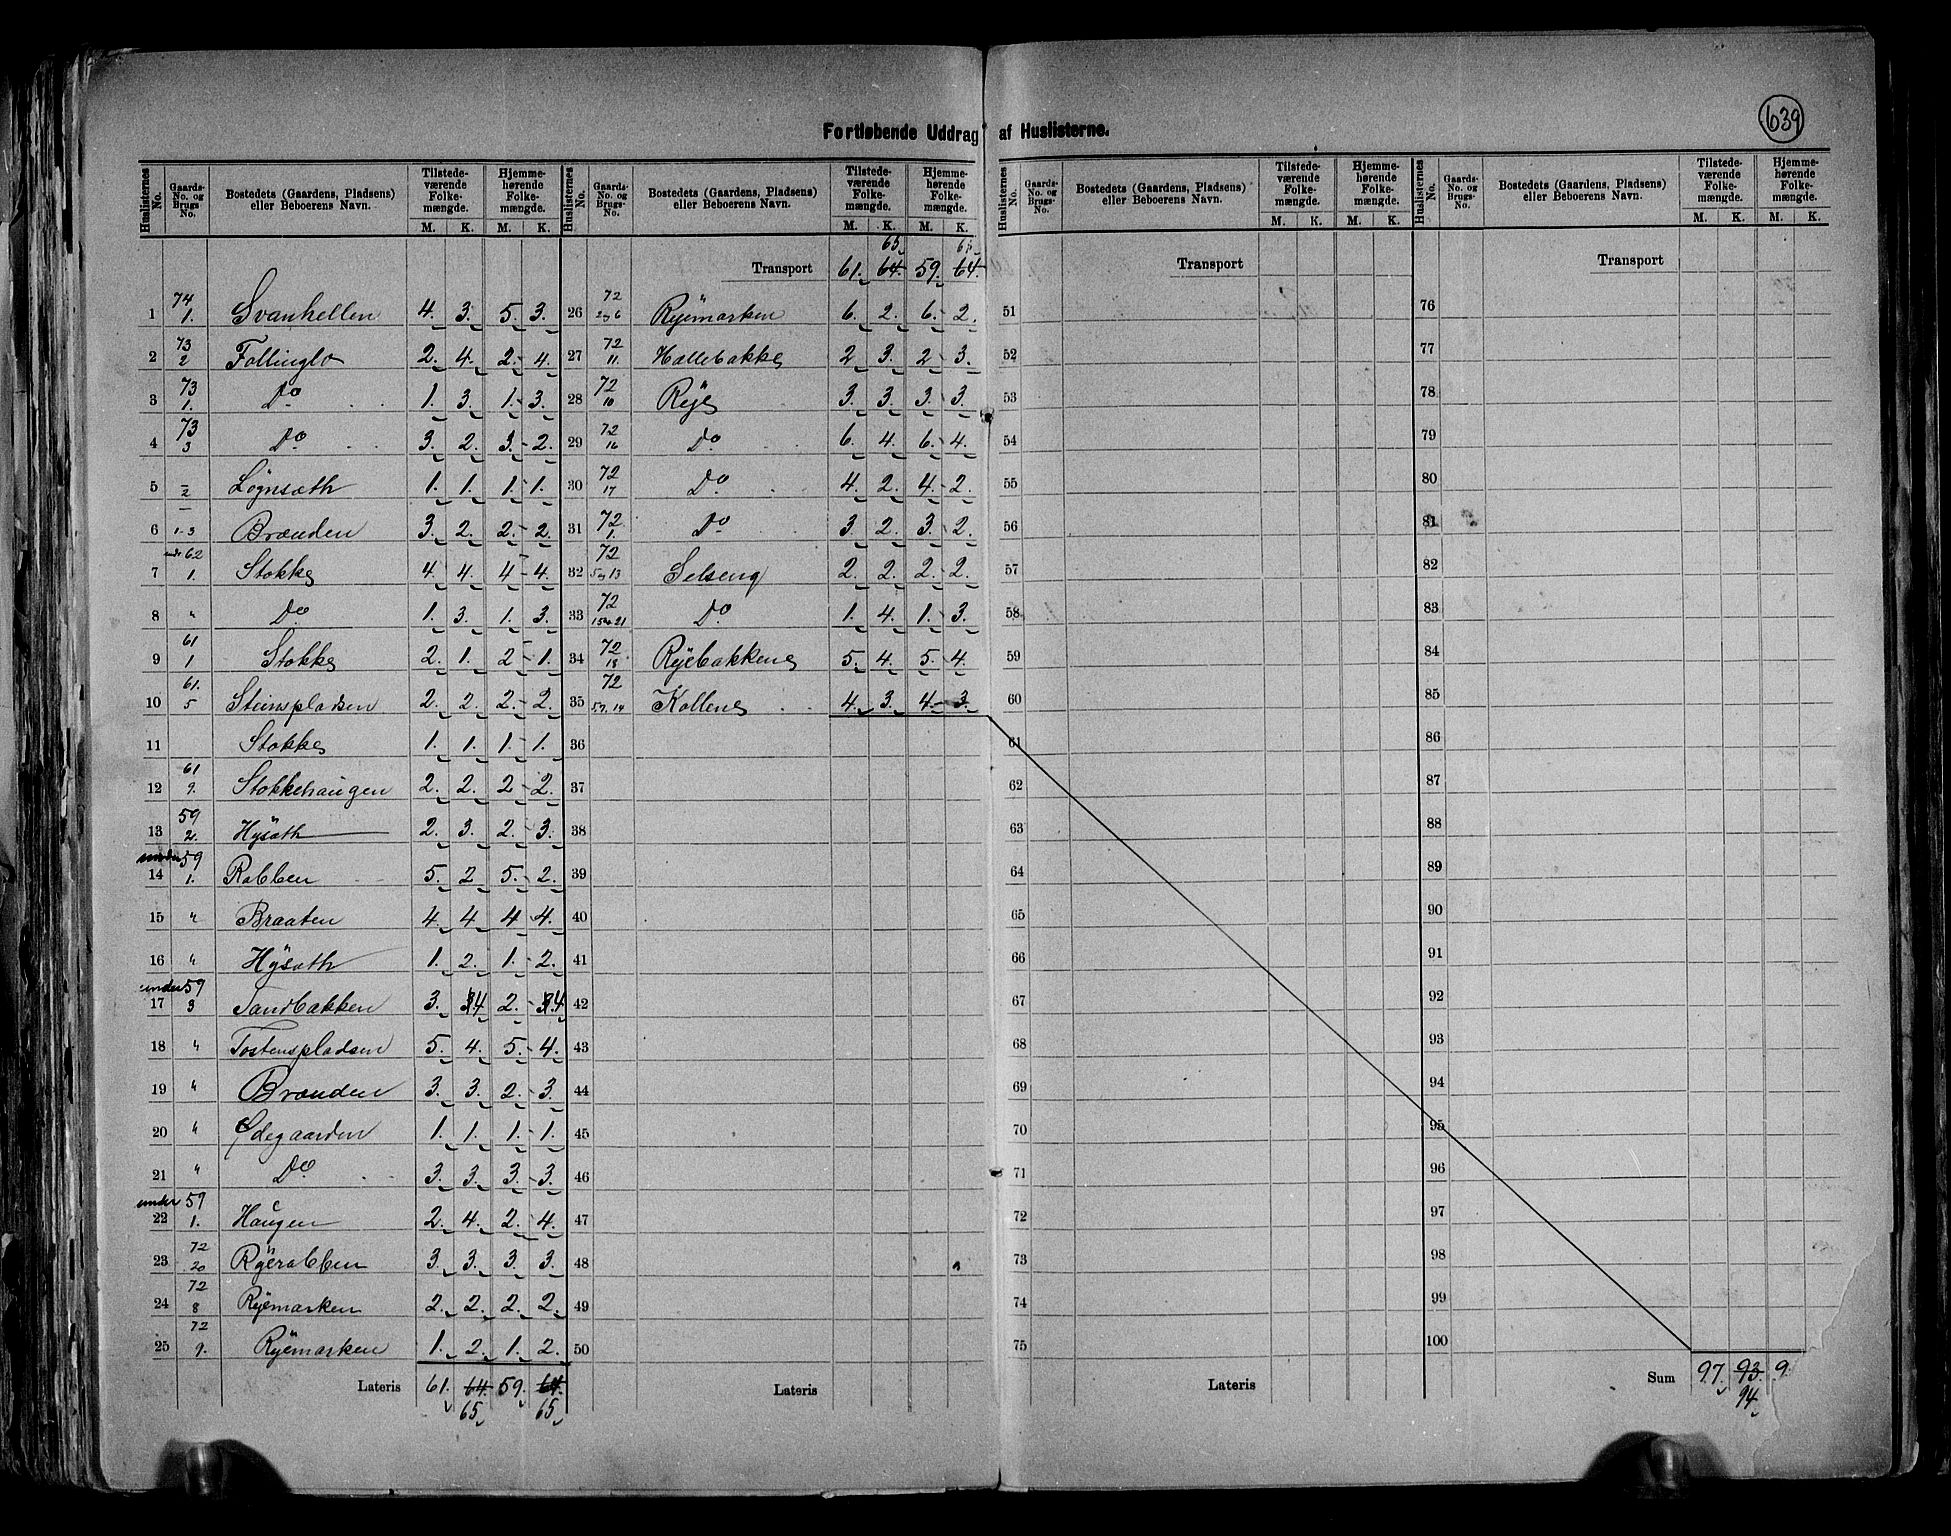 639
Fortløbende Uddrag af Huslisterne.
Huslisternes No. Gaards-No. og Brugs-No. Bostedets (Gaardens, Pladsens) eller Beboerens Navn. Tilstedeværende Folkemængde. M. K. Hjemmehørende Folkemængde. M. K.
1 74 1. Svanhellen 4. 3. 5. 3.
2 73 2 Follinglo 2. 4. 2. 4.
3 73 1. Do 1. 3. 1. 3.
4 73 3 Do 3. 2. 3. 2.
5 - 2 Løgnsæth 1. 1. 1. 1.
6 - 1-3 Brænden 3. 2. 2. 2.
7 under 62 1. Stokke 4. 4. 4. 4.
8 " Do 1. 3. 1. 3.
9 61 1 Stokke 2. 1. 2 1.
10 61. 5 Steinspladsen 2. 2. 2. 2.
11 Stokke 1. 1. 1. 1.
12 61 9. Stokkehaugen 2. 2. 2 2.
13 59 2. Hysæth 2. 3. 2. 3.
14 under 59 1. Robben 5. 2 5. 2.
15 " Braaten 4. 4 4 4.
16 " Hÿsæth 1. 2. 1. 2.
17 under 59 3 Sandbakken 3. 3 4 2. 3 4
18 " Tostenspladsen 5. 4. 5. 4.
19 " Brænden 3. 3. 2. 3.
20 " Ødegaarden 1. 1. 1. 1.
21 " Do 3. 3. 3. 3.
22 under 59 1. Haugen 2. 4. 2. 4.
23 72 20 Rÿerobben 3. 3. 3. 3.
24 72 8 Ryemarken 2. 2. 2. 2.
25 72 9. Rÿemarken 1. 2. 1. 2.
Lateris 61. 64. 59. 64.
65 65
Huslisternes No. Gaards-No. og Brugs-No. Bostedets (Gaardens, Pladsens) eller Beboerens Navn. Tilstedeværende Folkemængde. M. K. Hjemmehørende Folkemængde. M. K.
65 65
Transport 61. 64. 59. 64.
26 72 2 og 6 Ryemarken 6. 2. 6. 2.
27 72 11. Hallebakke 2 3. 2 3.
28 72 10 Rÿe 3. 3. 3. 3.
29 72 16 Do 6. 4. 6. 4.
30 72 17 Do 4. 2. 4. 2.
31 72 1. Do 3 2. 3. 2.
32 72 5 og 13 Selseng 2. 2. 2. 2.
33 72 15 og 21 Do 1. 4. 1. 3.
34 72 18 Rÿebakkene 5. 4. 5. 4.
35 72 Kollene 4. 3. 4. 3.
36
37
38
39
40
41
42
43
44
45
46
47
48
49
50
Lateris
Huslisternes No. Gaards-No. og Brugs-No. Bostedets (Gaardens, Pladsens) eller Beboerens Navn. Tilstedeværende Folkemængde. M. K. Hjemmehørende Folkemængde. M. K.
Transport
51
52
53
54
55
56
57
58
59
60
61
62
63
64
65
66
67
68
69
70
71
72
73
74
75
Lateris
Huslisternes No. Gaards-No. og Brugs-No. Bostedets (Gaardens, Pladsens) eller Beboerens Navn. Tilstedeværende Folkemængde. M. K. Hjemmehørende Folkemængde. M. K.
Transport
76
77
78
79
80
81
82
83
84
85
86
87
88
89
90
91
92
93
94
95
96
97
98
99
100
Sum 97. 93. 9
94